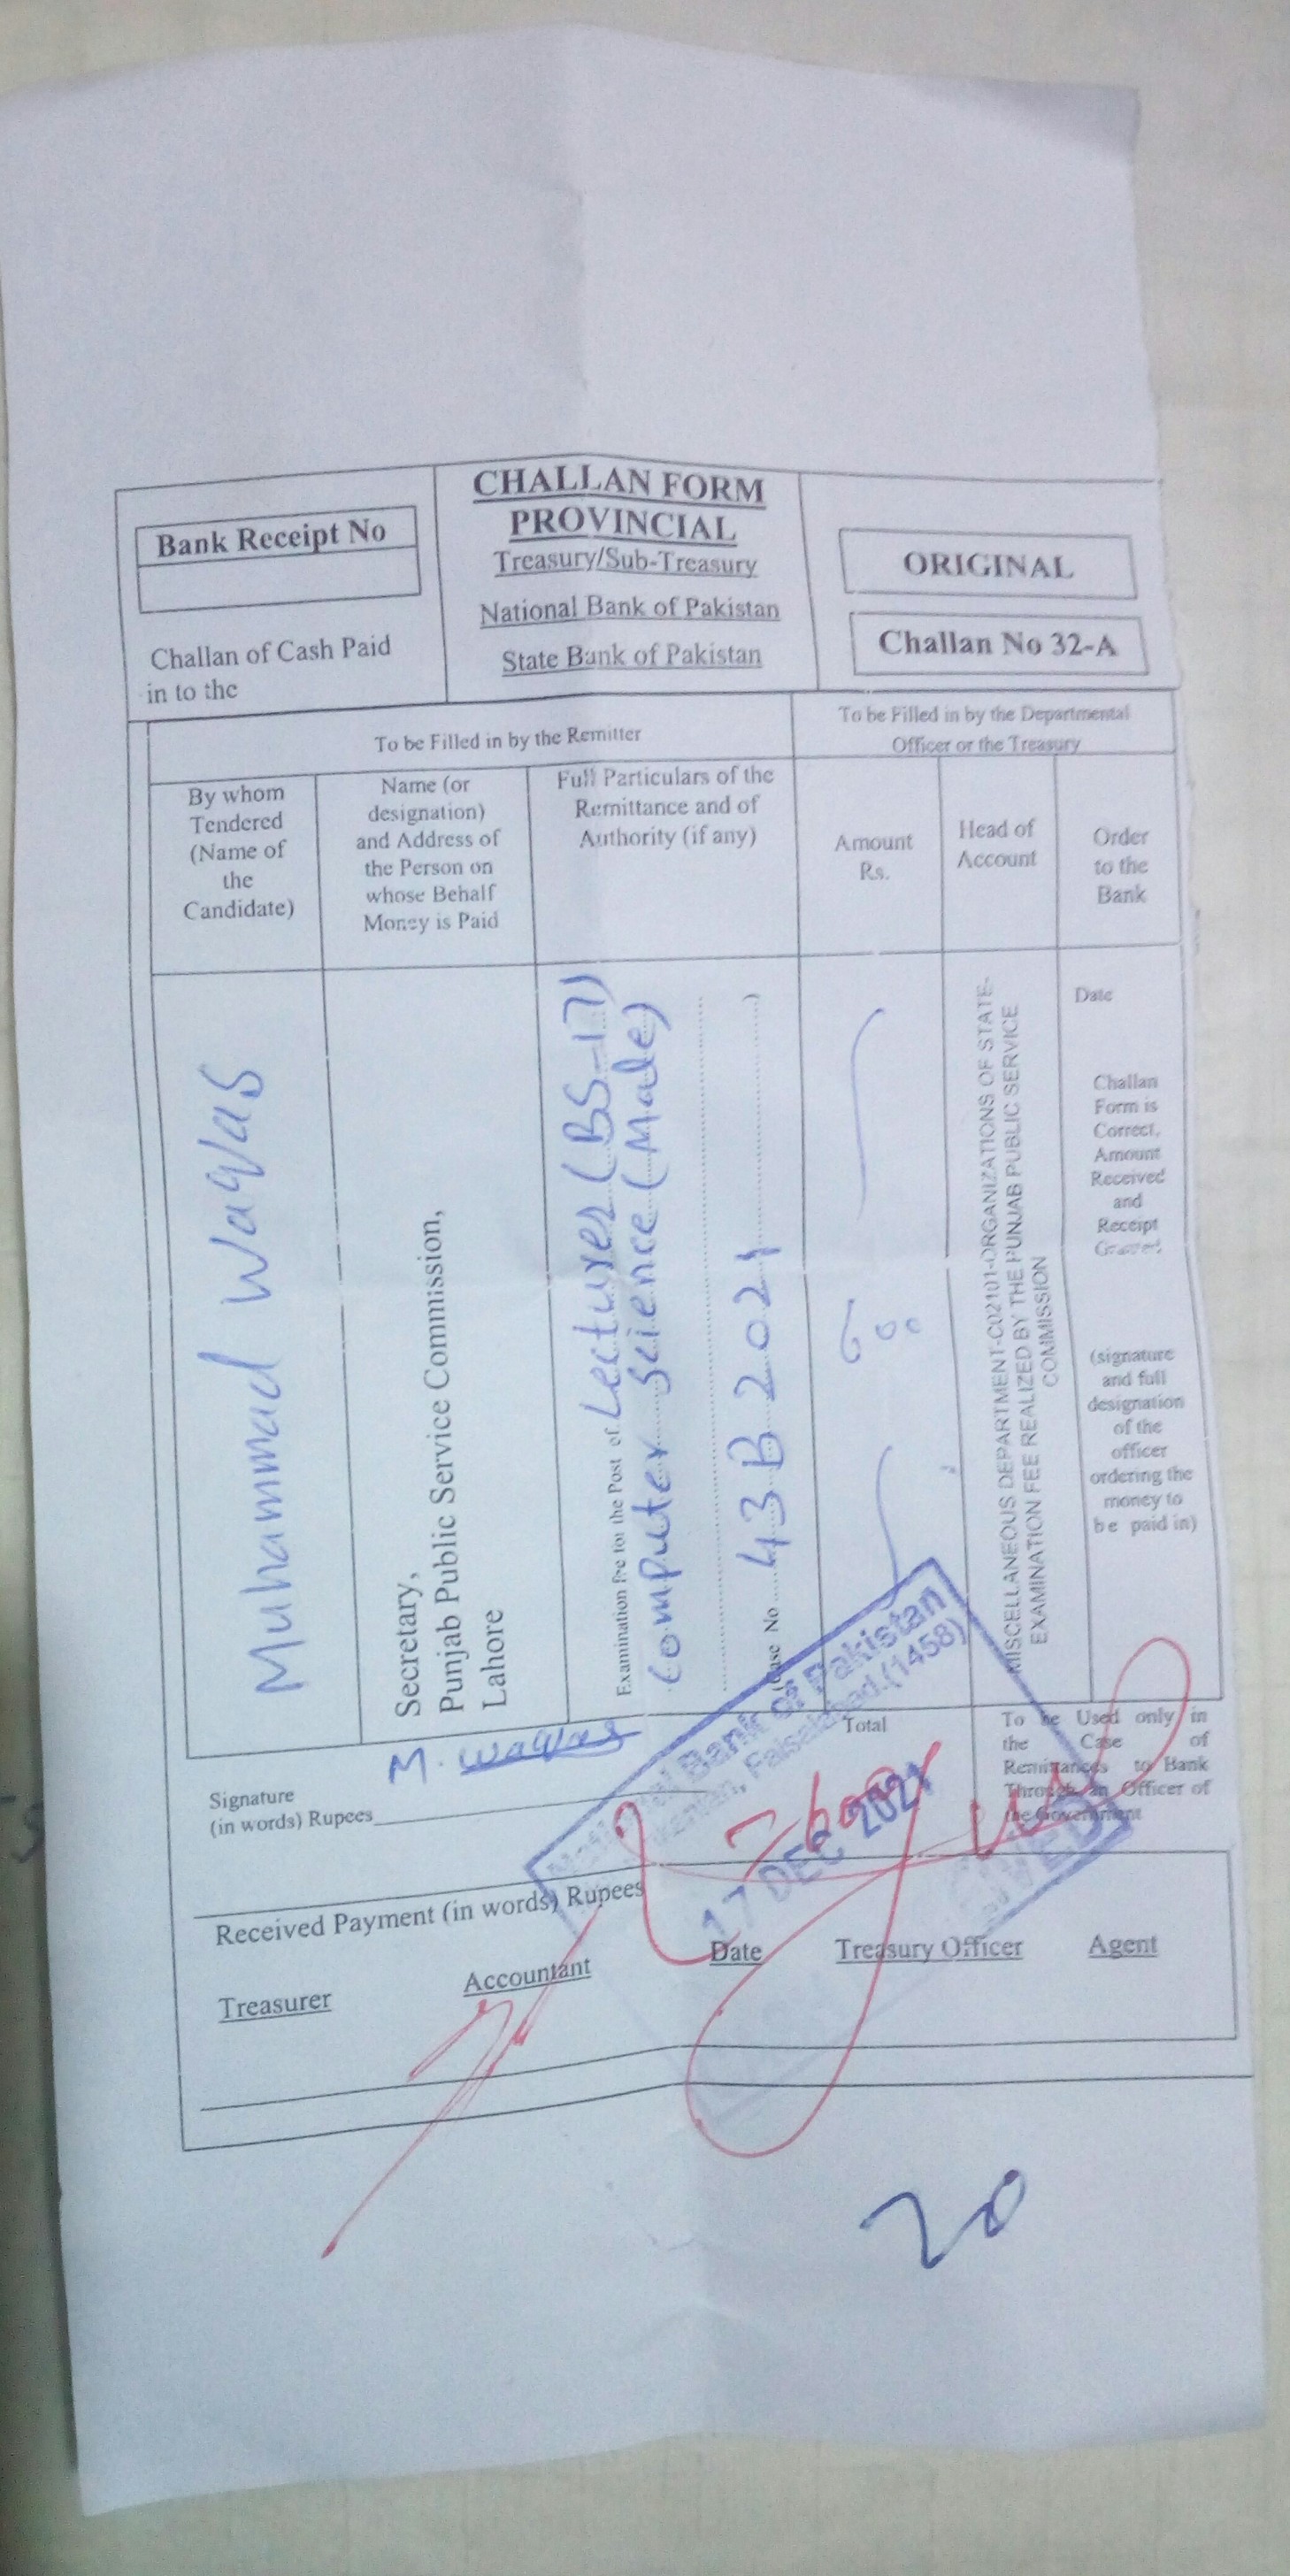 Bank Receipt No
Challan of Cash Paid
in to the
CHALLAN FORM
PROVINCIAL
Treasury/Sub-Treasury
National Bank of Pakistan
State Bank of Pakistan
ORIGINAL
Challan No 32-A
To be Filled in by the Remitter
To be Filled in by the Departmental
Officer or the Treasury
By whom
Tendered
(Name of
the
Candidate)
Name (or
designation)
and Address of
the Person on
whose Behalf
Money is Paid
Full Particulars of the
Remittance and of
Authority (if any)
Amount
Rs.
Head of
Account
Order
to the
Bank
Muhammad Waqas
Secretary,
Punjab Public Service Commission,
Lahore
Examination fee for the Post of Lecturer (BS-17)
Computer Science (Male)
(Case No 43B 2021)
600
MISCELLANEOUS DEPARTMENT-C02101-ORGANIZATIONS OF STATE-
EXAMINATION FEE REALIZED BY THE PUNJAB PUBLIC SERVICE
COMMISSION
Date
Challan
Form is
Correct,
Amount
Received
and
Receipt
(signature
and full
designation
of the
officer
ordering the
money to
be paid in)
Signature
M. Waqas
(in words) Rupees
Total
To be Used only in
the Case of
Remittances to Bank
Through an Officer of
the Government
Bank of Pakistan
Faisalabad.(1458)
17 DEC 2021
Received Payment (in words) Rupees
Treasurer
Accountant
Date
Treasury Officer
Agent
20